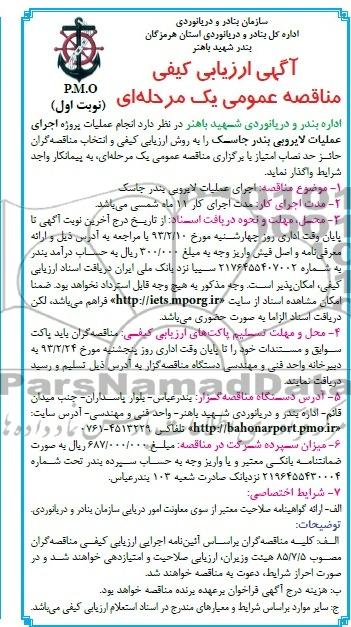 سازمان بنادر و دریانوردی
اداره کل بنادر و دریانوردی استان هرمزگان
بندر شهید باهنر
آگهی ارزیابی کیفی
مناقصه عمومی یک مرحله‌ای
P.M.O
(نوبت اول)
اداره بندر و دریانوردی شهید باهنر در نظر دارد انجام عملیات پروژه اجرای
عملیات لایروبی بندر جاسک را به روش ارزیابی کیفی و انتخاب مناقصه‌گران
حائز حد نصاب امتیاز با برگزاری مناقصه عمومی یک مرحله‌ای، به پیمانکار واجد
شرایط واگذار نماید.
۱- موضوع مناقصه: اجرای عملیات لایروبی بندر جاسک
۲- مدت اجرای کار: مدت اجرای کار ۱۱ ماه شمسی می‌باشد.
۳- محل، مهلت و نحوه دریافت اسناد: از تاریخ درج آخرین نوبت آگهی تا
پایان وقت اداری روز چهارشنبه مورخ ۹۳/۲/۱۰ با مراجعه به آدرس ذیل و ارائه
معرفی‌نامه و اصل فیش واریز وجه به مبلغ ۳۰۰/۰۰۰ ریال به حساب درآمد بندر
به شماره ۲۱۷۶۴۵۵۴۰۷۰۰۲ سیبا نزد بانک ملی ایران دریافت اسناد ارزیابی
کیفی، امکان‌پذیر است. وجه مذکور به هیچ وجه قابل استرداد نخواهد بود. ضمنا
امکان مشاهده اسناد از سایت «http://iets.mporg.ir» فراهم می‌باشد، لکن
دریافت اسناد الزاما به صورت حضوری می‌باشد.
۴- محل و مهلت تسلیم پاکت‌های ارزیابی کیفی: مناقصه‌گران باید پاکت
سوابق و مستندات خود را تا پایان وقت اداری روز پنجشنبه مورخ ۹۳/۲/۲۴ به
دبیرخانه واحد فنی و مهندسی دستگاه مناقصه‌گزار به آدرس ذیل تسلیم و رسید
دریافت نمایند.
۵- آدرس دستگاه مناقصه‌گزار: بندرعباس- بلوار پاسداران- جنب میدان
قائم- اداره بندر و دریانوردی شهید باهنر- واحد فنی و مهندسی- آدرس سایت:
«http://bahonarport.pmo.ir» تلفاکس ۴۵۱۳۲۳۹-۰۷۶۱
۶- میزان سپرده شرکت در مناقصه: مبلغ ۶۸۷/۰۰۰/۰۰۰ ریال به صورت
ضمانتنامه بانکی معتبر و یا واریز وجه به حساب سپرده بندر تحت شماره
۲۱۹۶۴۵۵۴۳۰۰۰۴ نزدبانک صادرات شعبه ۱۰۳ بندرعباس.
۷- شرایط اختصاصی:
الف- ارائه گواهینامه صلاحیت معتبر از سوی معاونت امور دریایی سازمان بنادر و دریانوردی.
توضیحات:
الف: کلیه مناقصه‌گران براساس آئین‌نامه اجرایی ارزیابی کیفی مناقصه‌گران
مصوب ۸۵/۷/۵ هیئت وزیران، ارزیابی صلاحیت و امتیازدهی خواهند شد و در
صورت احراز شرایط، دعوت به مناقصه خواهند شد.
ب: هزینه درج آگهی فراخوان برعهده برنده مناقصه خواهد بود.
ج: سایر موارد براساس شرایط و معیارهای مندرج در اسناد استعلام ارزیابی کیفی می‌باشد.
ParsNamadData